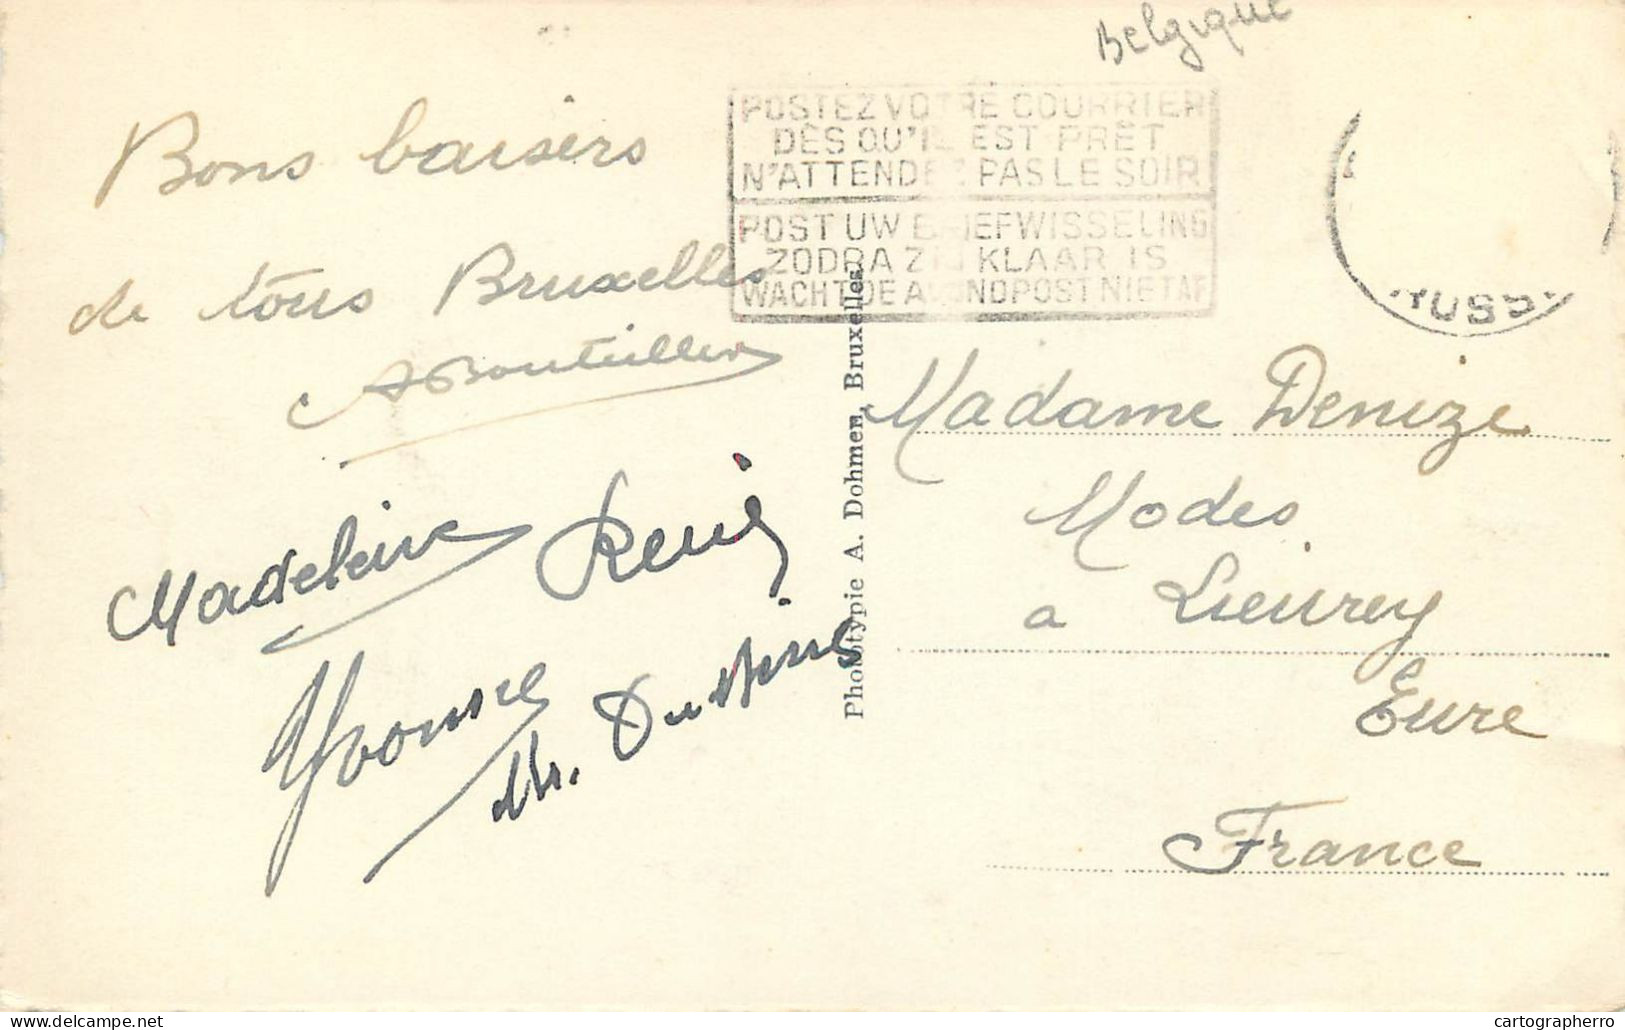 Belgique
POSTEZ VOTRE COURRIER
DÈS QU'IL EST PRÊT
N'ATTENDEZ PAS LE SOIR
POST UW BRIEFWISSELING
ZODRA ZIJ KLAAR IS
WACHT DE AVONDPOST NIET AF
Bons baisers
de tous Bruxelles
Madeleine
René
Yvonne
Phototypie A. Dohmen, Bruxelles
Madame Denize
Modes
a Lieurey
Eure
France
cartographerro
www.delcampe.net